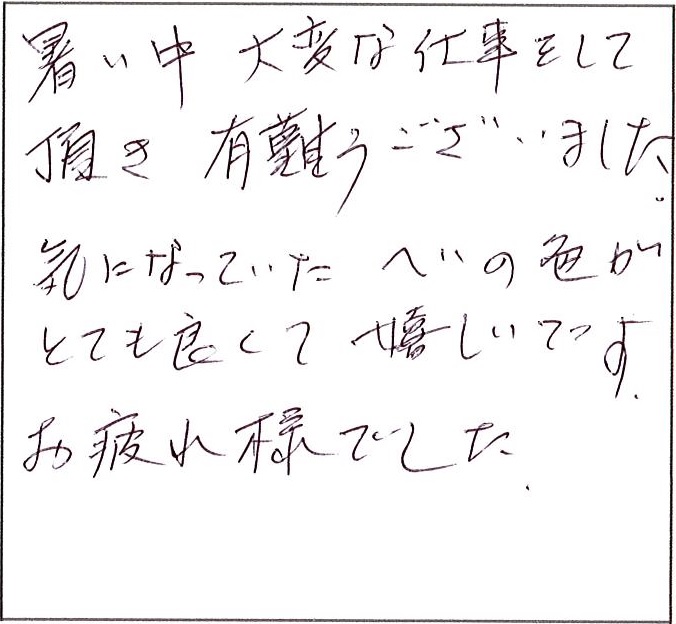 暑い中 大変な仕事をして
頂き 有難うございました。
気になっていた へいの色が
とても良くて 嬉しいです。
お疲れ様でした.